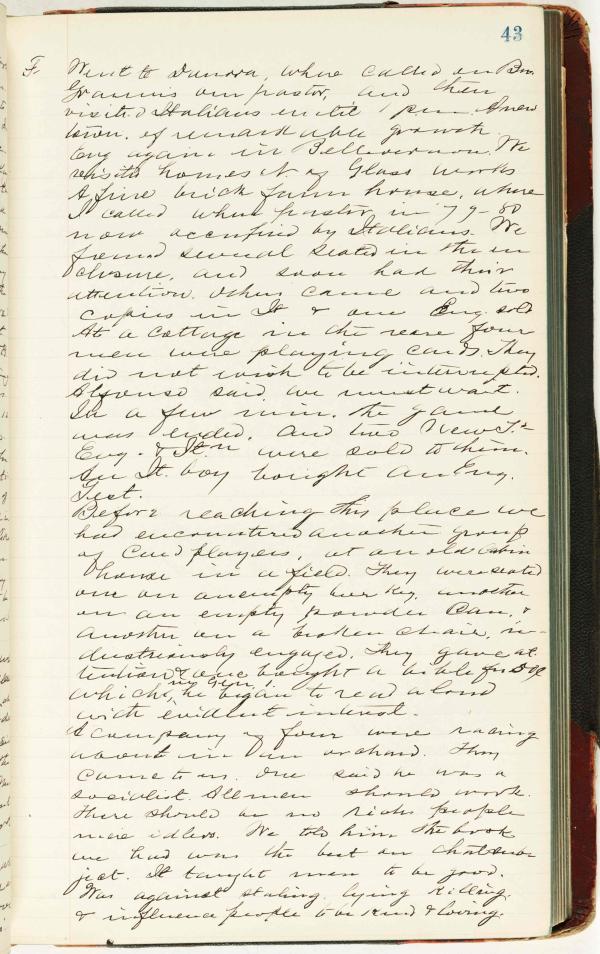 43
F. Went to Donora, where called on Bro
our pastor, and then
visited Italians until 1 p.m. A new
town. of remarkable growth.
Eng again in Bellevernon. We
visited homes N. of Glass works
A fine brick farm house, where
I called when pastor in 79-80
now occupied by Italians. We
found several seated in the en
closure, and soon had their
attention. Others came and two
copies in It & one Eng. sold
At a cottage in the rear four
men were playing cards. They
did not wish to be interrupted.
Alfonso said we must wait.
In a few min. the game
was ended, and two New Ts
Eng. & Itn were sold to them.
An It. boy bought an Eng.
Test.
Before reaching this place we
had encountered another group
of Card players, at an old cabin
house in a field. They were seated
one on an empty beer keg, another
on an empty powder can, &
another on a broken chair, in-
dustriously engaged. They gave at
tention & one bought a bible for
which he began to read aloud
with evident interest.
A company of four were
about in an orchard. They
came to us. One said he was a
socialist. All men should work.
There should be no rich people
more idlers. We told him the book
we had was the best on that sub
ject. It taught men to be good.
Was against stealing lying killing.
& influence people to be kind & loving.